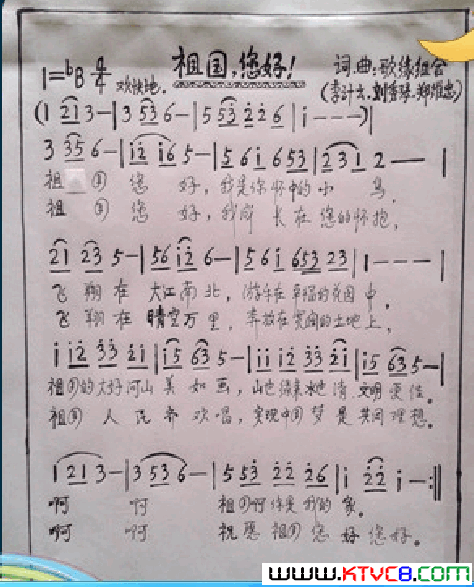 祖国,您好!
1=♭B 4/4 欢快地. 词.曲:歌缘组合
(1 21 3-|3 53 6-|5 53 22 6|i---)|
3 35 6-|i2 i6 5-|5 6 i 6 53|2 3 1 2--|
祖 您 好,我是你怀中的小鸟,
祖 您 好,我成长在您的怀抱,
21 23 5-|56 i2 6-|56 i 653 23|1---|
飞翔在 大江南北, 游乐在幸福的花园中,
飞翔在 晴空万里, 奔放在宽阔的土地上,
i i2 33 2i|i5 63 5-|ii i2 33 2i|i5 63 5-|
祖国的大好河山 美如画, 山也绿来水也清 文明更佳。
祖国 人民齐欢唱, 实现中国梦是共同理想。
1 2 1 3-|3 53 6-|5 53 22 26|i 22 i-:||
啊 啊 祖国啊你是我的家。
啊 啊 祝愿祖国您好您好。
WWW.KTVC8.COM